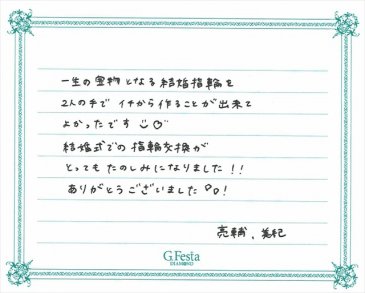 一生の宝物となる結婚指輪を
2人の手でイチから作ることが出来て
よかったです
結婚式での指輪交換が
とってもたのしみになりました！！
ありがとうございました！
亮輔、美紀
G.Festa
DIAMOND